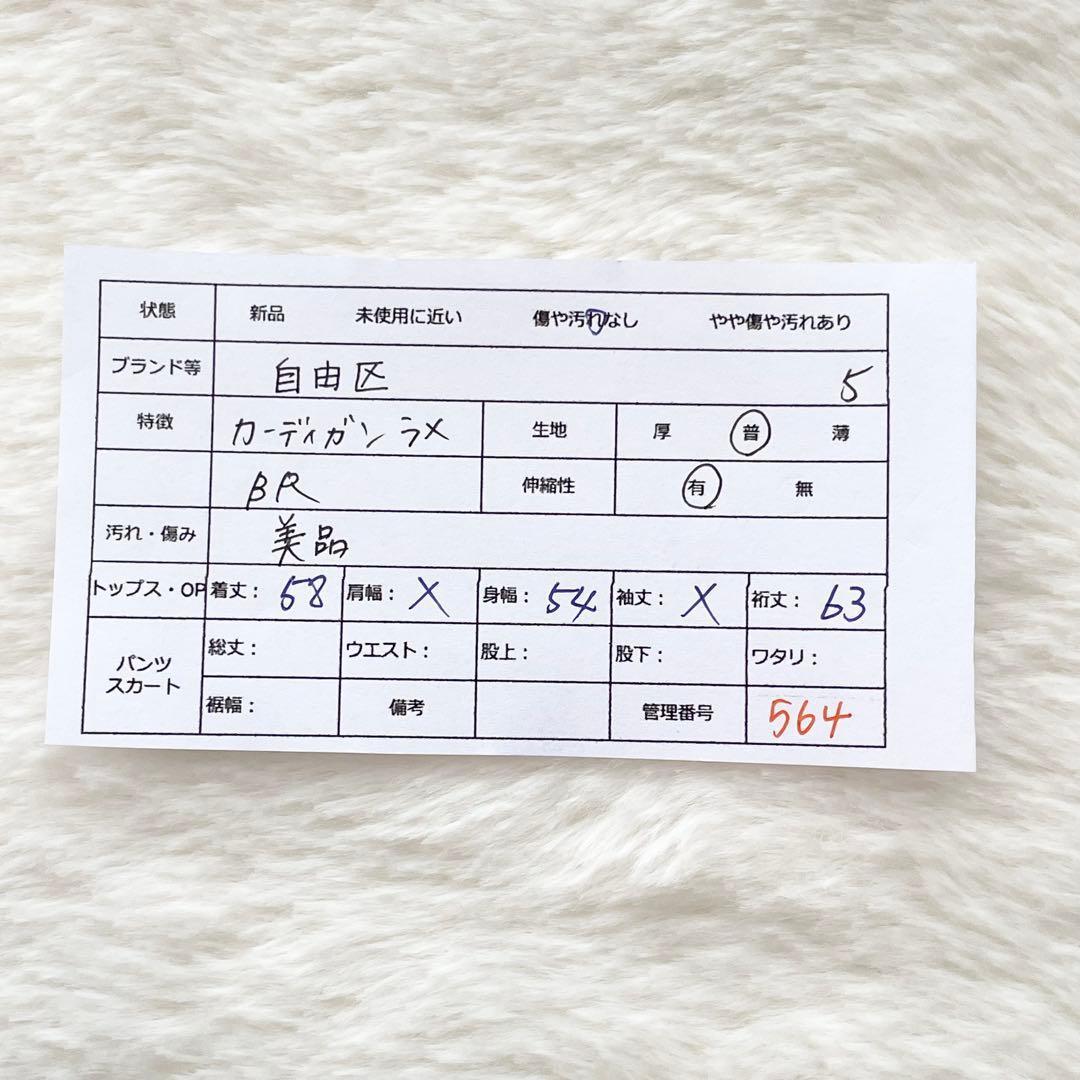 状態 新品 未使用に近い 傷や汚れなし やや傷や汚れあり
ブランド等 自由区 5
特徴 カーディガン ラメ 生地 厚 普 薄
BR 伸縮性 有 無
汚れ・傷み 美品
トップス・OP 着丈： 58 肩幅： X 身幅： 54 袖丈： X 裄丈： 63
パンツ スカート 総丈： ウエスト： 股上： 股下： ワタリ：
裾幅： 備考 管理番号 564